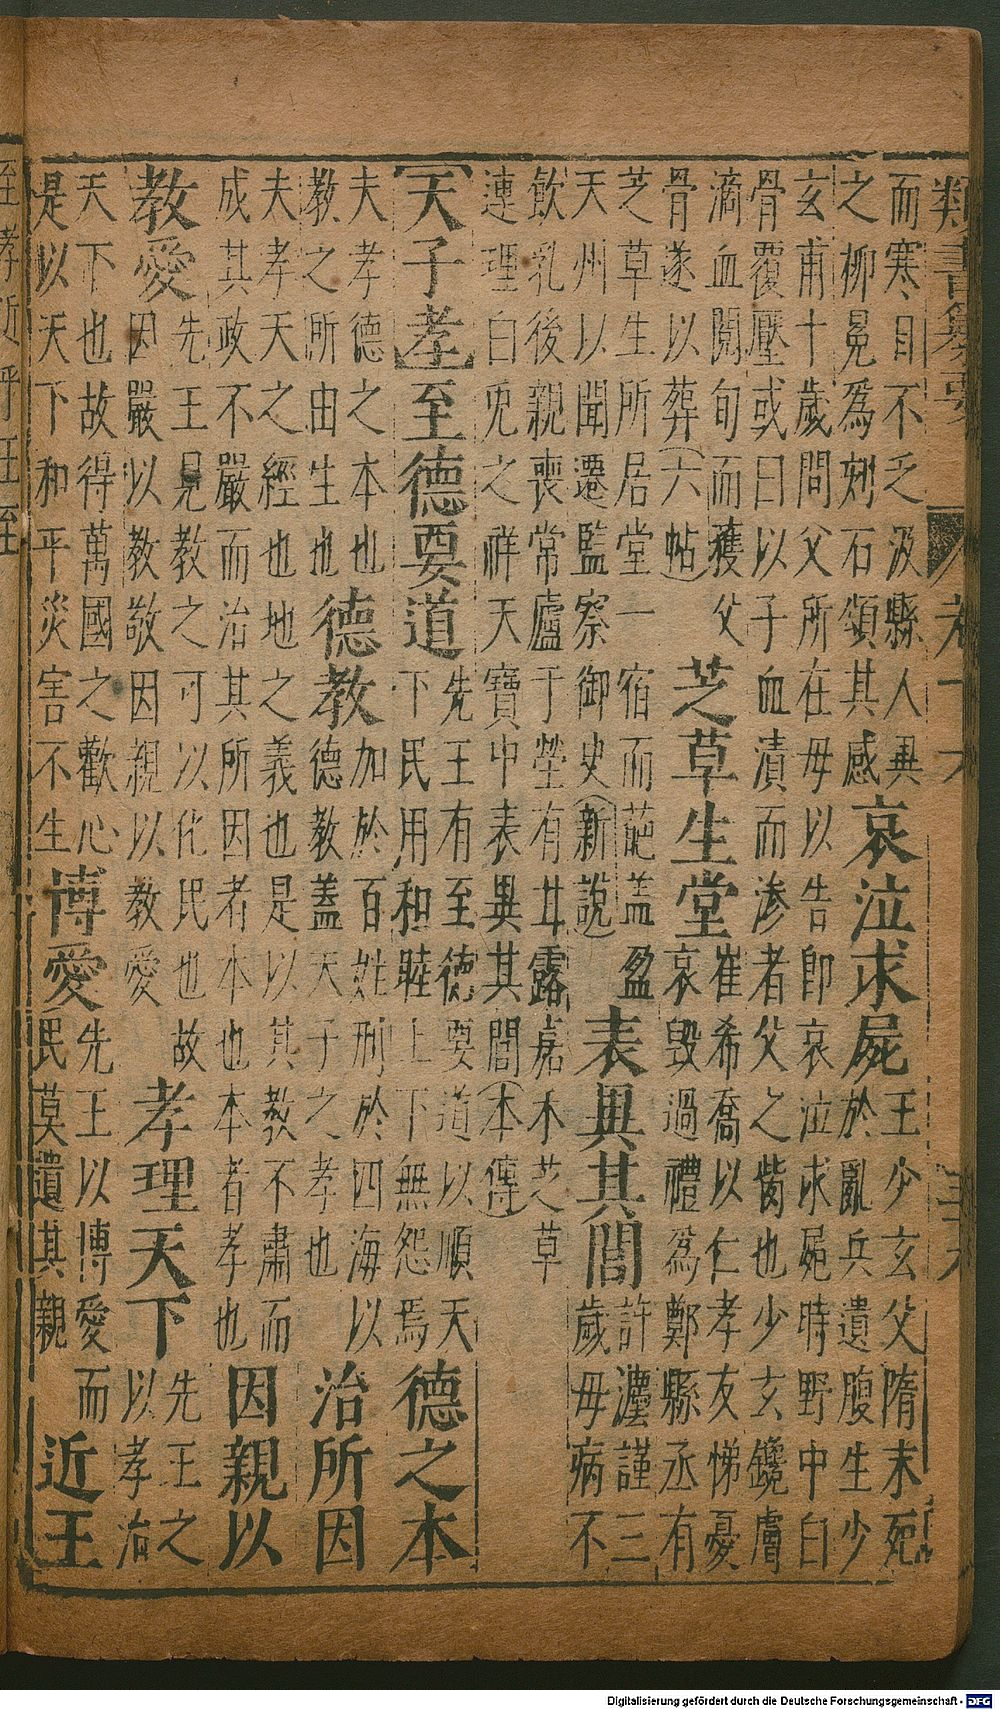 類書纂要
而寒目不乏汲縣人異
之柳冕為刻石頌其感
哀泣求屍
王少玄父隋末死
於亂兵遺腹生少
玄甫十歲問父所在母以告即哀泣求屍時野中白
骨覆壓或曰以子血漬而滲者父之胔也少玄鑱膚
滴血閱旬而獲父
骨遂以葬（六帖）
芝草生堂
崔希喬以仁孝友悌憂
哀毀過禮為鄭縣丞有
芝草生所居堂一宿而葩蓋盈
天州以聞遷監察御史（新說）
表異其閭
許灋謹三
歲母病不
飲乳後親喪常廬于塋有甘露嘉木芝草
連理白兔之祥天寶中表異其閭（本傳）
【天子孝】至德要道
先王有至德要道以順天
下民用和睦上下無怨焉
德之本
夫孝德之本也
教之所由生也
德教
加於百姓刑於四海以
德教蓋天子之孝也
治所因
夫孝天之經也地之義也是以其教不肅而
成其政不嚴而治其所因者本也本者孝也
因親以
教愛
先王見教之可以化民也故
因嚴以教敬因親以教愛
孝理天下
先王之
以孝治
天下也故得萬國之歡心
是以天下和平災害不生
博愛
先王以博愛而
民莫遺其親
近王
至孝近乎王至
Digitalisierung gefördert durch die Deutsche Forschungsgemeinschaft - DFG